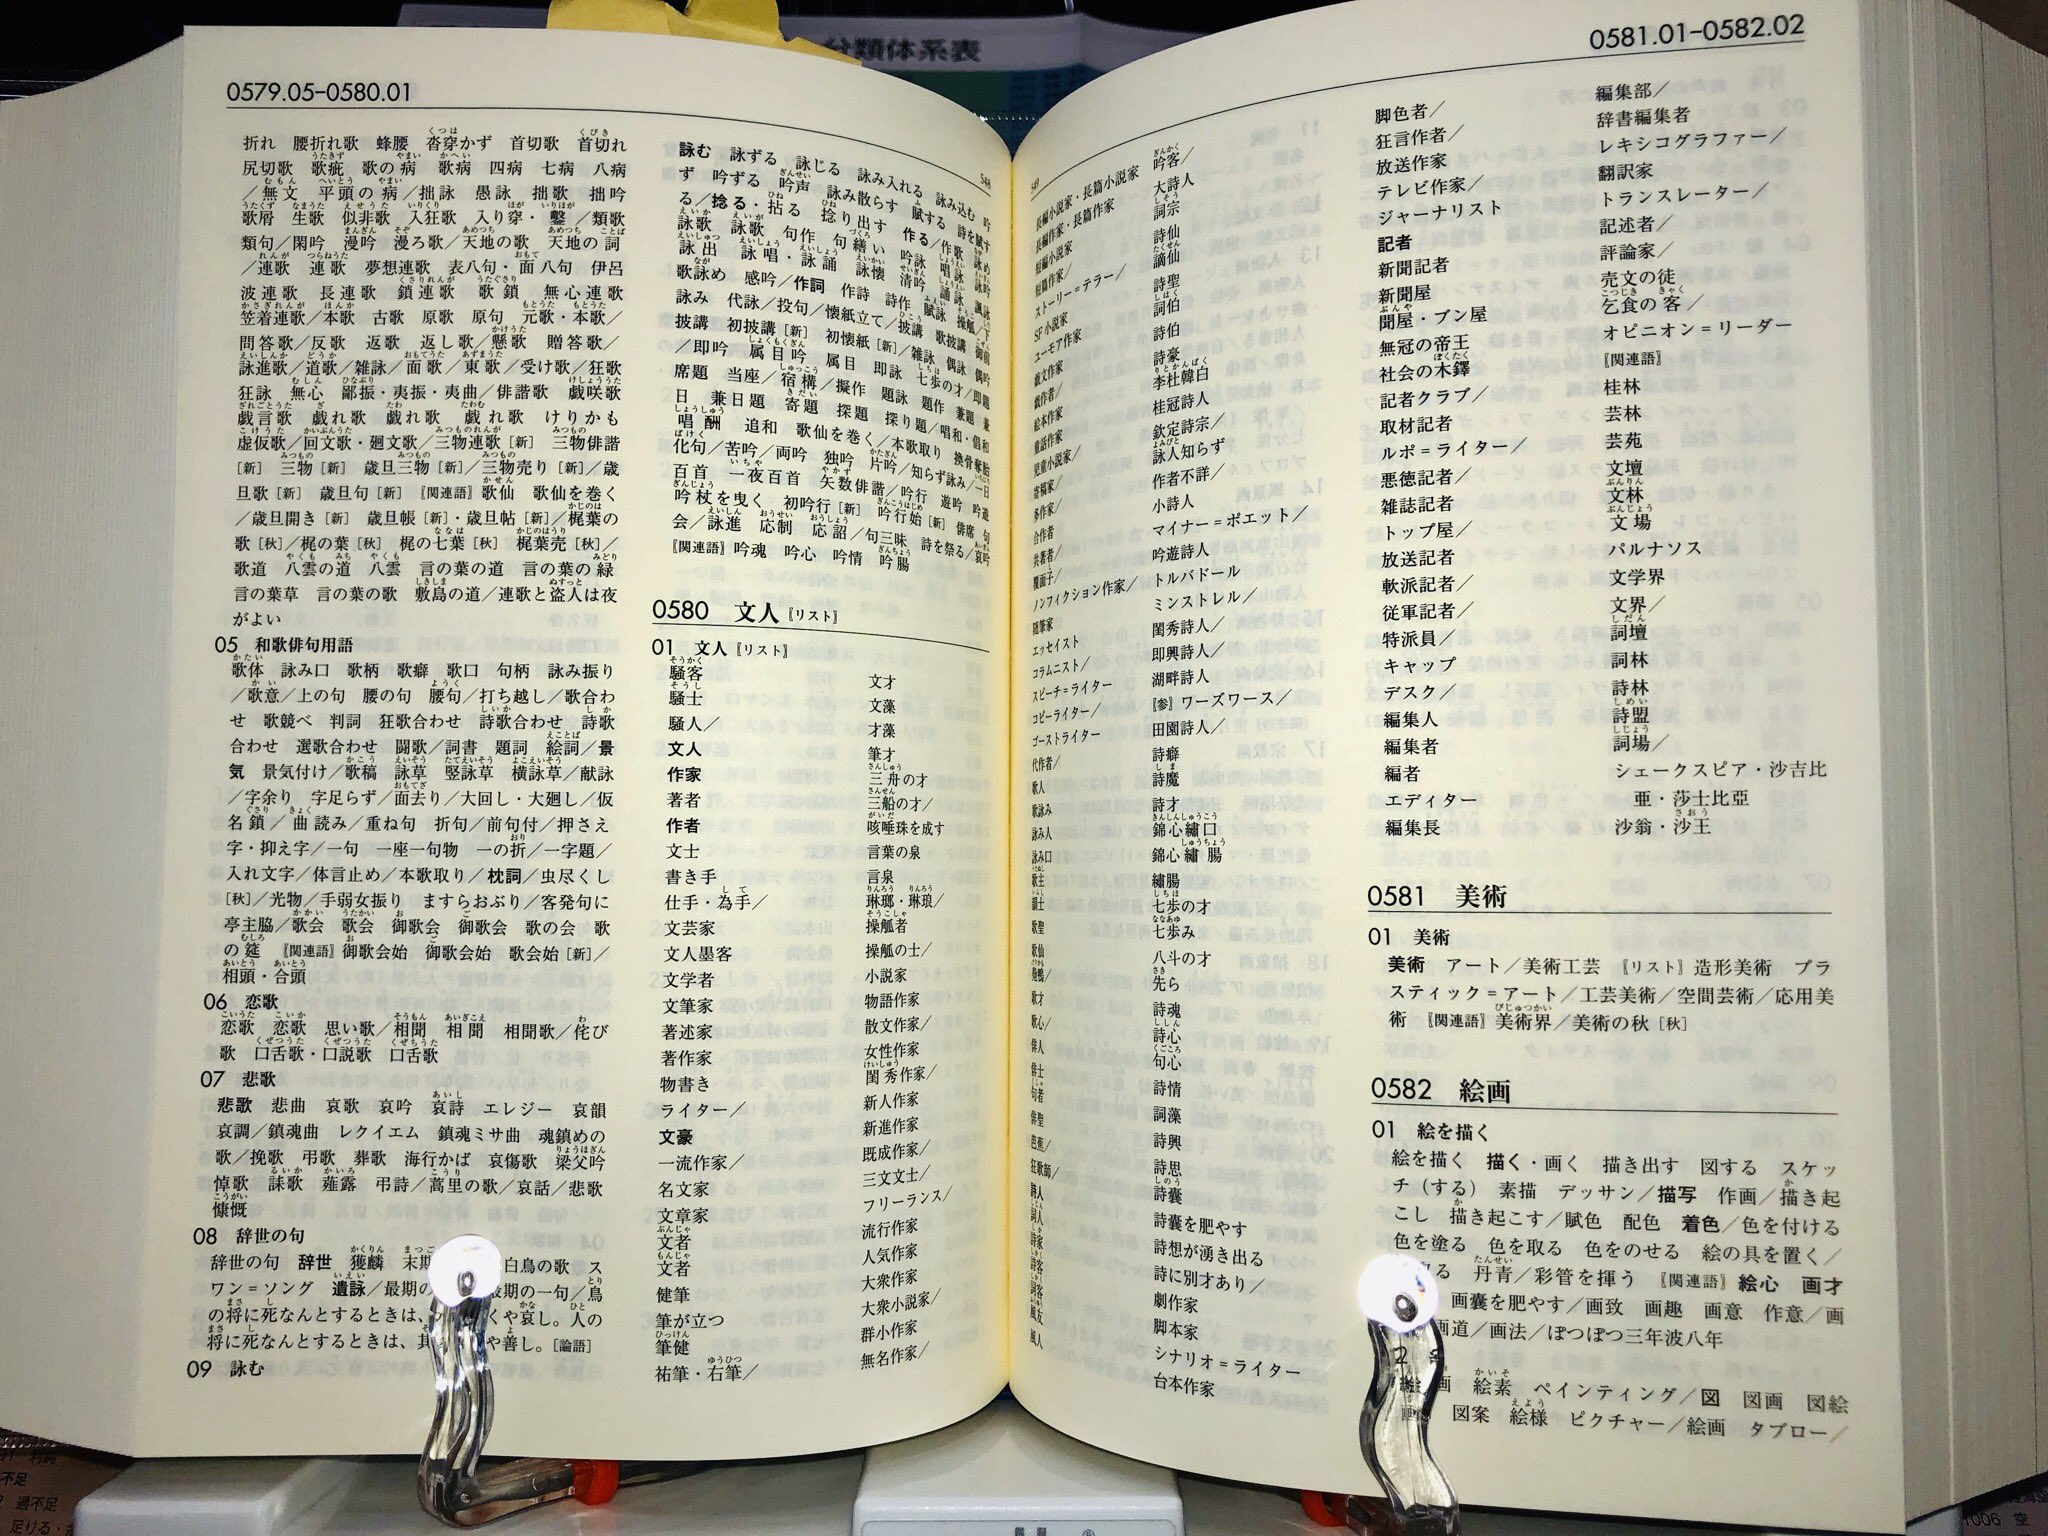 分類体系表
0579.05−0580.01
折れ　腰折れ歌　蜂腰　沓穿かず　首切歌　首切れ
尻切歌　歌疵　歌の病　歌病　四病　七病　八病
／無文　平頭の病／拙詠　愚詠　拙歌　拙吟
歌屑　生歌　似非歌　入狂歌　入り穿・鑿／類歌
類句／閑吟　漫吟　漫ろ歌／天地の歌　天地の詞
／連歌　連歌　夢想連歌　表八句・面八句　伊呂
波連歌　長連歌　鎖連歌　歌鎖　無心連歌
笠着連歌／本歌　古歌　原歌　原句　元歌・本歌／
問答歌／反歌　返歌　返し歌／懸歌　贈答歌／
詠進歌／道歌／雑詠／面歌／東歌／受け歌／狂歌
狂詠　無心　鄙振・夷振・夷曲／俳諧歌　戯咲歌
戯言歌　戯れ歌　戯れ歌　戯れ歌　けりかも
虚仮歌／回文歌・廻文歌／三物連歌［新］　三物俳諧
［新］　三物［新］　歳旦三物［新］／三物売り［新］／歳
旦歌［新］　歳旦句［新］〖関連語〗歌仙　歌仙を巻く
／歳旦開き［新］　歳旦帳［新］・歳旦帖［新］／梶葉の
歌［秋］／梶の葉［秋］　梶の七葉［秋］　梶葉売［秋］／
歌道　八雲の道　八雲　言の葉の道　言の葉の緑
言の葉草　言の葉の歌　敷島の道／連歌と盗人は夜
がよい
05　和歌俳句用語
歌体　詠み口　歌柄　歌癖　歌口　句柄　詠み振り
／歌意／上の句　腰の句　腰句／打ち越し／歌合わ
せ　歌競べ　判詞　狂歌合わせ　詩歌合わせ　詩歌
合わせ　選歌合わせ　闘歌／詞書　題詞　絵詞／景
気　景気付け／歌稿　詠草　竪詠草　横詠草／献詠
／字余り　字足らず／面去り／大回し・大廻し／仮
名鎖／曲読み／重ね句　折句／前句付／押さえ
字・抑え字／一句　一座一句物　一の折／一字題／
入れ文字／体言止め／本歌取り／枕詞／虫尽くし
［秋］／光物／手弱女振り　ますらおぶり／客発句に
亭主脇／歌会　歌会　御歌会　御歌会　歌の会　歌
の筵　〖関連語〗御歌会始　御歌会始　歌会始［新］／
相頭・合頭
06　恋歌
恋歌　恋歌　思い歌／相聞　相聞　相聞歌／侘び
歌　口舌歌・口説歌　口舌歌
07　悲歌
悲歌　悲曲　哀歌　哀吟　哀詩　エレジー　哀韻
哀調／鎮魂曲　レクイエム　鎮魂ミサ曲　魂鎮めの
歌／挽歌　弔歌　葬歌　海行かば　哀傷歌　梁父吟
悼歌　誄歌　薤露　弔詩／蒿里の歌／哀話／悲歌
慷慨
08　辞世の句
辞世の句　辞世　獲麟　末期　白鳥の歌　ス
ワン＝ソング　遺詠／最期の　最期の一句／鳥
の将に死なんとするときは、　くや哀し。人の
将に死なんとするときは、其　や善し。［論語］
09　詠む
548
詠む　詠ずる　詠じる　詠み入れる　詠み込む　吟
ず　吟ずる　吟声　詠み散らす　賦する　詩を賦す
る／捻る・拈る　捻り出す　作る／作歌　詠め
詠歌　詠歌　句作　句繕い　吟詠　唱詠　詠吟
詠出　詠唱・詠誦　詠懐　清吟　誦詠　諷詠
歌詠め　感吟／作詞　作詩　詩作　賦詠　操觚／下
詠み　代詠／投句／懐紙立て／披講　歌披講　御前
披講　初披講［新］　初懐紙［新］／雑詠　偶詠　偶吟
／即吟　属目吟　属目　即詠　七歩の才／即題
席題　当座／宿構／擬作　題詠　題作　兼題　兼
日　兼日題　寄題　探題　探り題／唱和・倡和
唱酬　追和　歌仙を巻く／本歌取り　換骨奪胎
化句／苦吟／両吟　独吟　片吟／知らず詠み／一日
百首　一夜百首　矢数俳諧／吟行　遊吟　吟遊
吟杖を曳く　初吟行［新］　吟行始［新］　俳席　句
会／詠進　応制　応詔／句三昧　詩を祭る／哀吟
〖関連語〗吟魂　吟心　吟情　吟腸
0580　文人〖リスト〗
01　文人〖リスト〗
騒客
騒士
騒人／
文人
作家
著者
作者
文士
書き手
仕手・為手／
文芸家
文人墨客
文学者
文筆家
著述家
著作家
物書き
ライター／
文豪
一流作家／
名文家
文章家
文者
文者
健筆
筆が立つ
筆健
祐筆・右筆／
文才
文藻
才藻
筆才
三舟の才
三船の才／
咳唾珠を成す
言葉の泉
言泉
琳瑯・琳琅／
操觚者
操觚の士／
小説家
物語作家
散文作家／
女性作家
閨秀作家／
新人作家
新進作家
既成作家／
三文文士／
フリーランス／
流行作家
人気作家
大衆作家
大衆小説家／
群小作家
無名作家／
0581.01−0582.02
549
長編小説家・長篇小説家
長編作家・長篇作家
短編小説家
短篇作家／
ストーリー＝テラー／
SF小説家
ユーモア作家
戯文作家
戯作者／
絵本作家
童話作家
児童小説家／
寄稿家／
多作家／
合作者
共著者／
覆面子／
ノンフィクション作家／
随筆家
エッセイスト
コラムニスト／
スピーチ＝ライター
コピーライター／
ゴーストライター
代作者／
歌人
歌詠み
詠み人
詠み口
歌主
韻士
歌聖
歌仙
歌才
歌心／
俳人
俳士
句者
俳聖
芭蕉／
狂歌師／
詩人
詞人
詩家
詩客
詞客
風友
風人
吟客／
大詩人
詞宗
詩仙
謫仙
詩聖
詞伯
詩伯
詩豪
李杜韓白
桂冠詩人
欽定詩宗／
詠人知らず
作者不詳／
小詩人
マイナー＝ポエット／
吟遊詩人
トルバドール
ミンストレル／
閨秀詩人／
即興詩人／
湖畔詩人
〖参〗ワーズワース／
田園詩人／
詩癖
詩魔
詩才
錦心繡口
錦心繡腸
繡腸
七歩の才
七歩み
八斗の才
先ら
詩魂
詩心
句心
詩情
詞藻
詩興
詩思
詩囊
詩囊を肥やす
詩想が湧き出る
詩に別才あり／
劇作家
脚本家
シナリオ＝ライター
台本作家
脚色者／
狂言作者／
放送作家
テレビ作家／
ジャーナリスト
記者
新聞記者
新聞屋
聞屋・ブン屋
無冠の帝王
社会の木鐸
記者クラブ／
取材記者
ルポ＝ライター／
悪徳記者／
雑誌記者
トップ屋／
放送記者
軟派記者／
従軍記者／
特派員／
キャップ
デスク／
編集人
編集者
編者
エディター
編集長
編集部／
辞書編集者
レキシコグラファー／
翻訳家
トランスレーター／
記述者／
評論家／
売文の徒
乞食の客／
オピニオン＝リーダー
〖関連語〗
桂林
芸林
芸苑
文壇
文林
文場
パルナソス
文学界
文界／
詞壇
詞林
詩林
詩盟
詞場／
シェークスピア・沙吉比
亜・莎士比亞
沙翁・沙王
0581　美術
01　美術
美術　アート／美術工芸　〖リスト〗造形美術　プラ
スティック＝アート／工芸美術／空間芸術／応用美
術　〖関連語〗美術界／美術の秋［秋］
0582　絵画
01　絵を描く
絵を描く　描く・画く　描き出す　図する　スケッ
チ（する）　素描　デッサン／描写　作画／描き起
こし　描き起こす／賦色　配色　着色／色を付ける
色を塗る　色を取る　色をのせる　絵の具を置く／
る　丹青／彩管を揮う　〖関連語〗絵心　画才
画囊を肥やす／画致　画趣　画意　作意／画
画道／画法／ぽつぽつ三年波八年
02
絵画　絵素　ペインティング／図　図画　図絵
画　図案　絵様　ピクチャー／絵画　タブロー／
不足
過不足
足ける・
1006　空